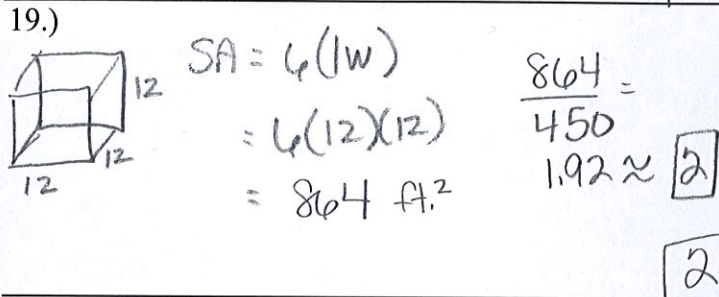 19.)
12
12
12
SA = 6(lw)
= 6(12)(12)
= 864 ft.²
864
450
=
1.92 ≈ 2
2